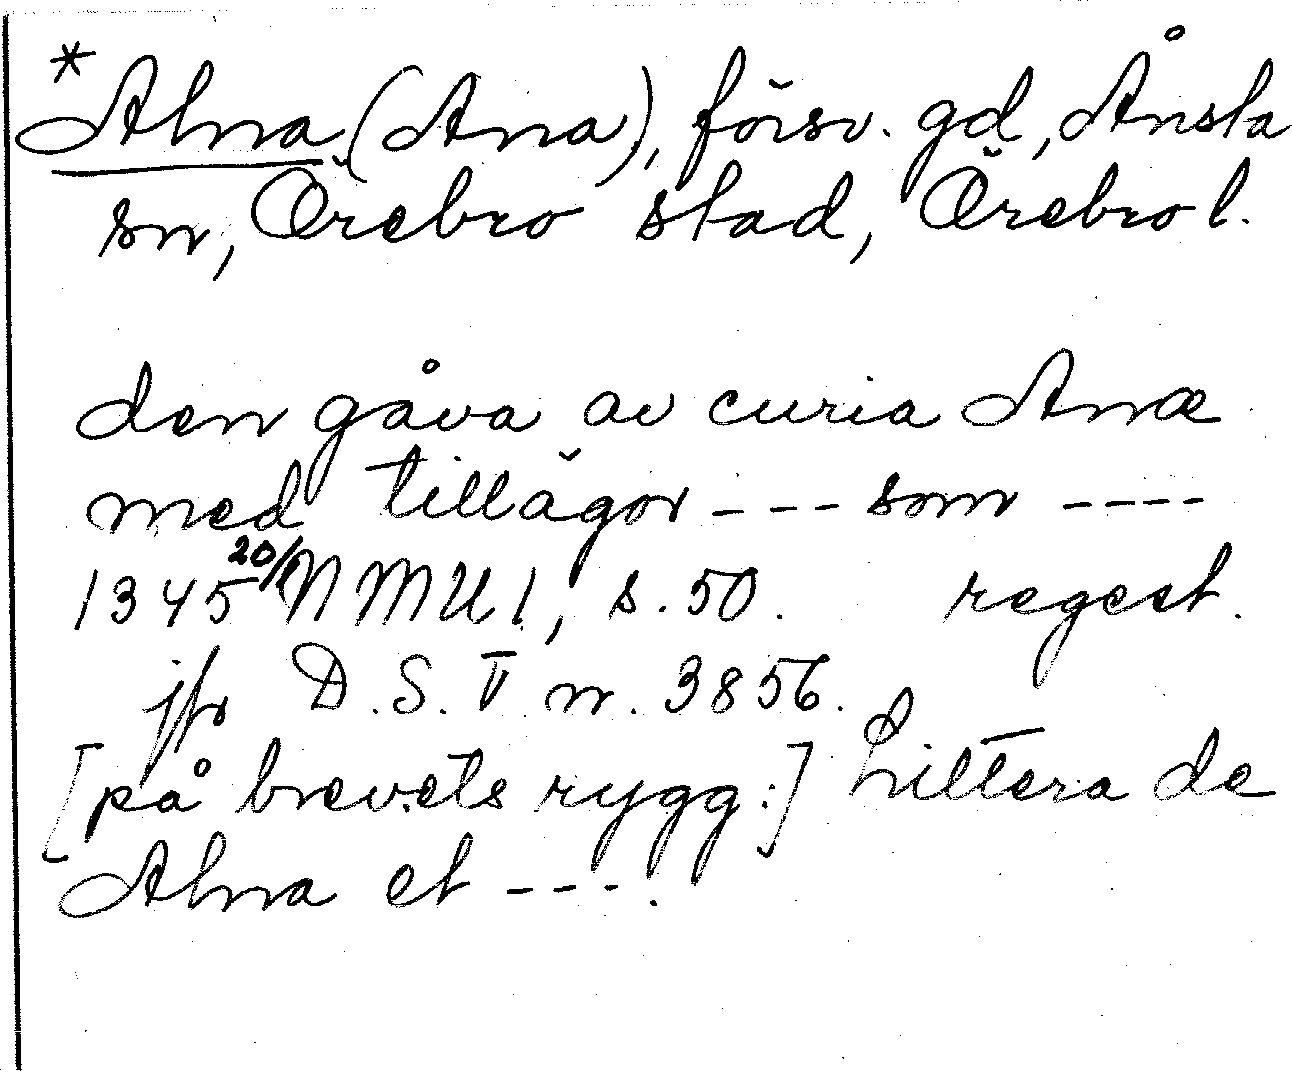 *Alna (Ana), försv. gd, Ånsta
sn, Örebro stad, Örebro l.
den gåva av curia Anæ
med tillägor --- som ----
1345 20/1 NMU 1, s. 50. regest.
jfr D.S. V nr. 3856.
[på brevets rygg:] Littera de
Alna et ---.